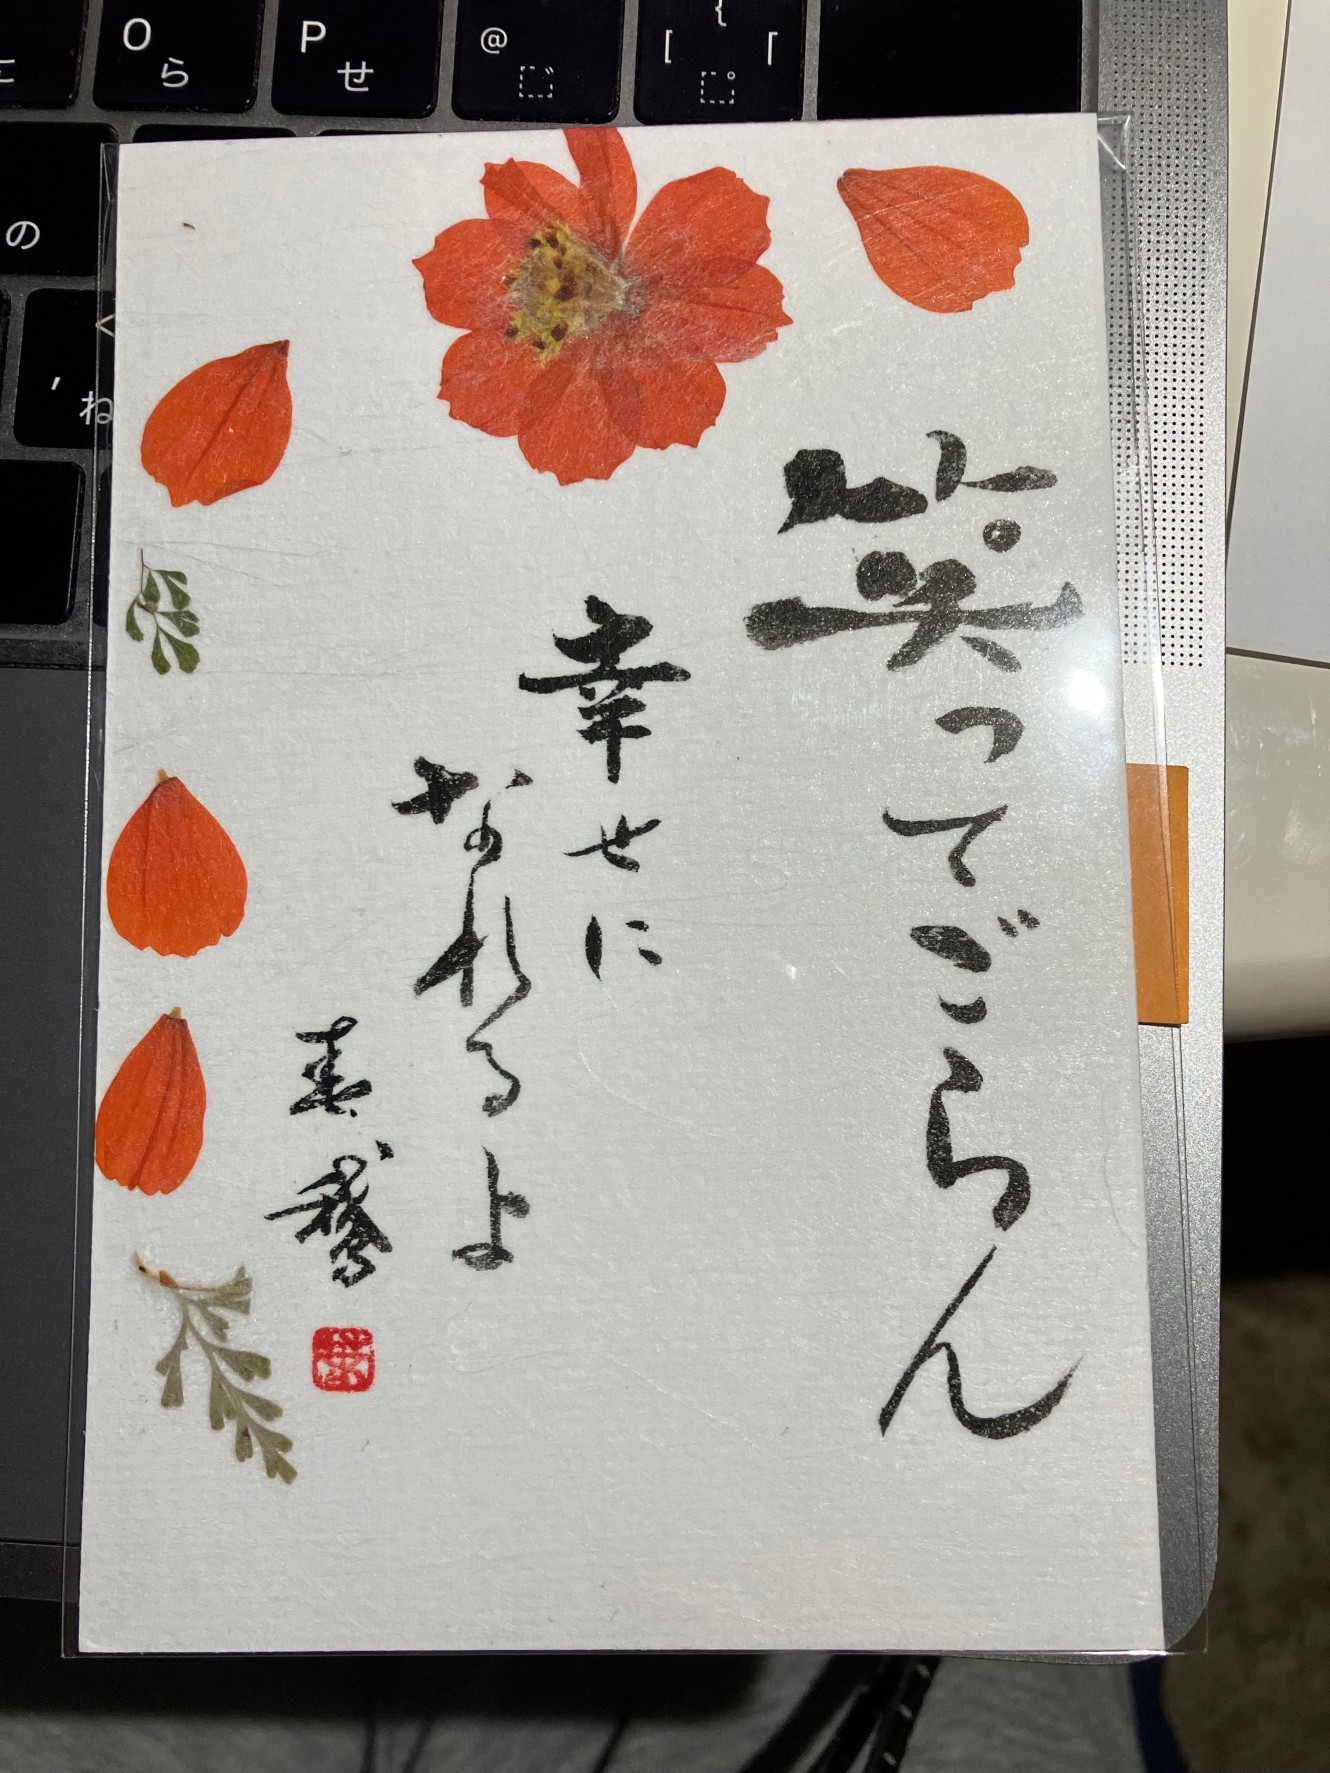 笑ってごらん
幸せに
なれるよ
O
ら
P
せ
@
゛
{
[
「
゜
の
<
,
ね